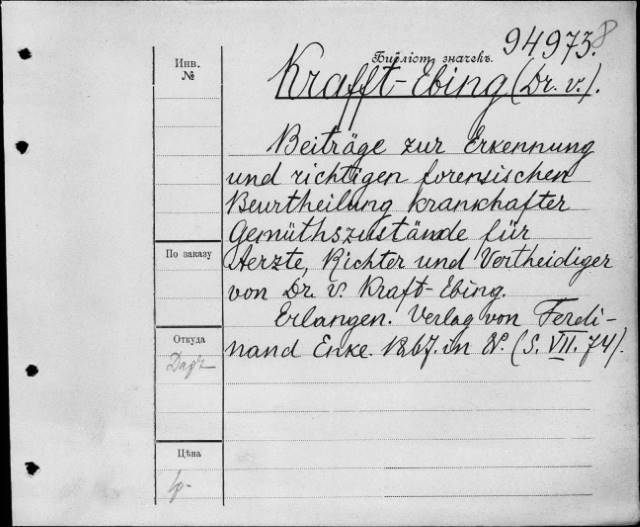 949738
Инв.
№
Библіот. значекъ.
Krafft-Ebing (Dr. v.).
Beiträge zur Erkennung
und richtigen forensischen
Beurtheilung krankhafter
Gemüthszustände für
Aerzte, Richter und Vertheidiger
von Dr. v. Kraft-Ebing.
Erlangen. Verlag von Ferdi-
nand Enke. 1867. in 8º. (S. VII. 74).
По заказу
Откуда
Цѣна